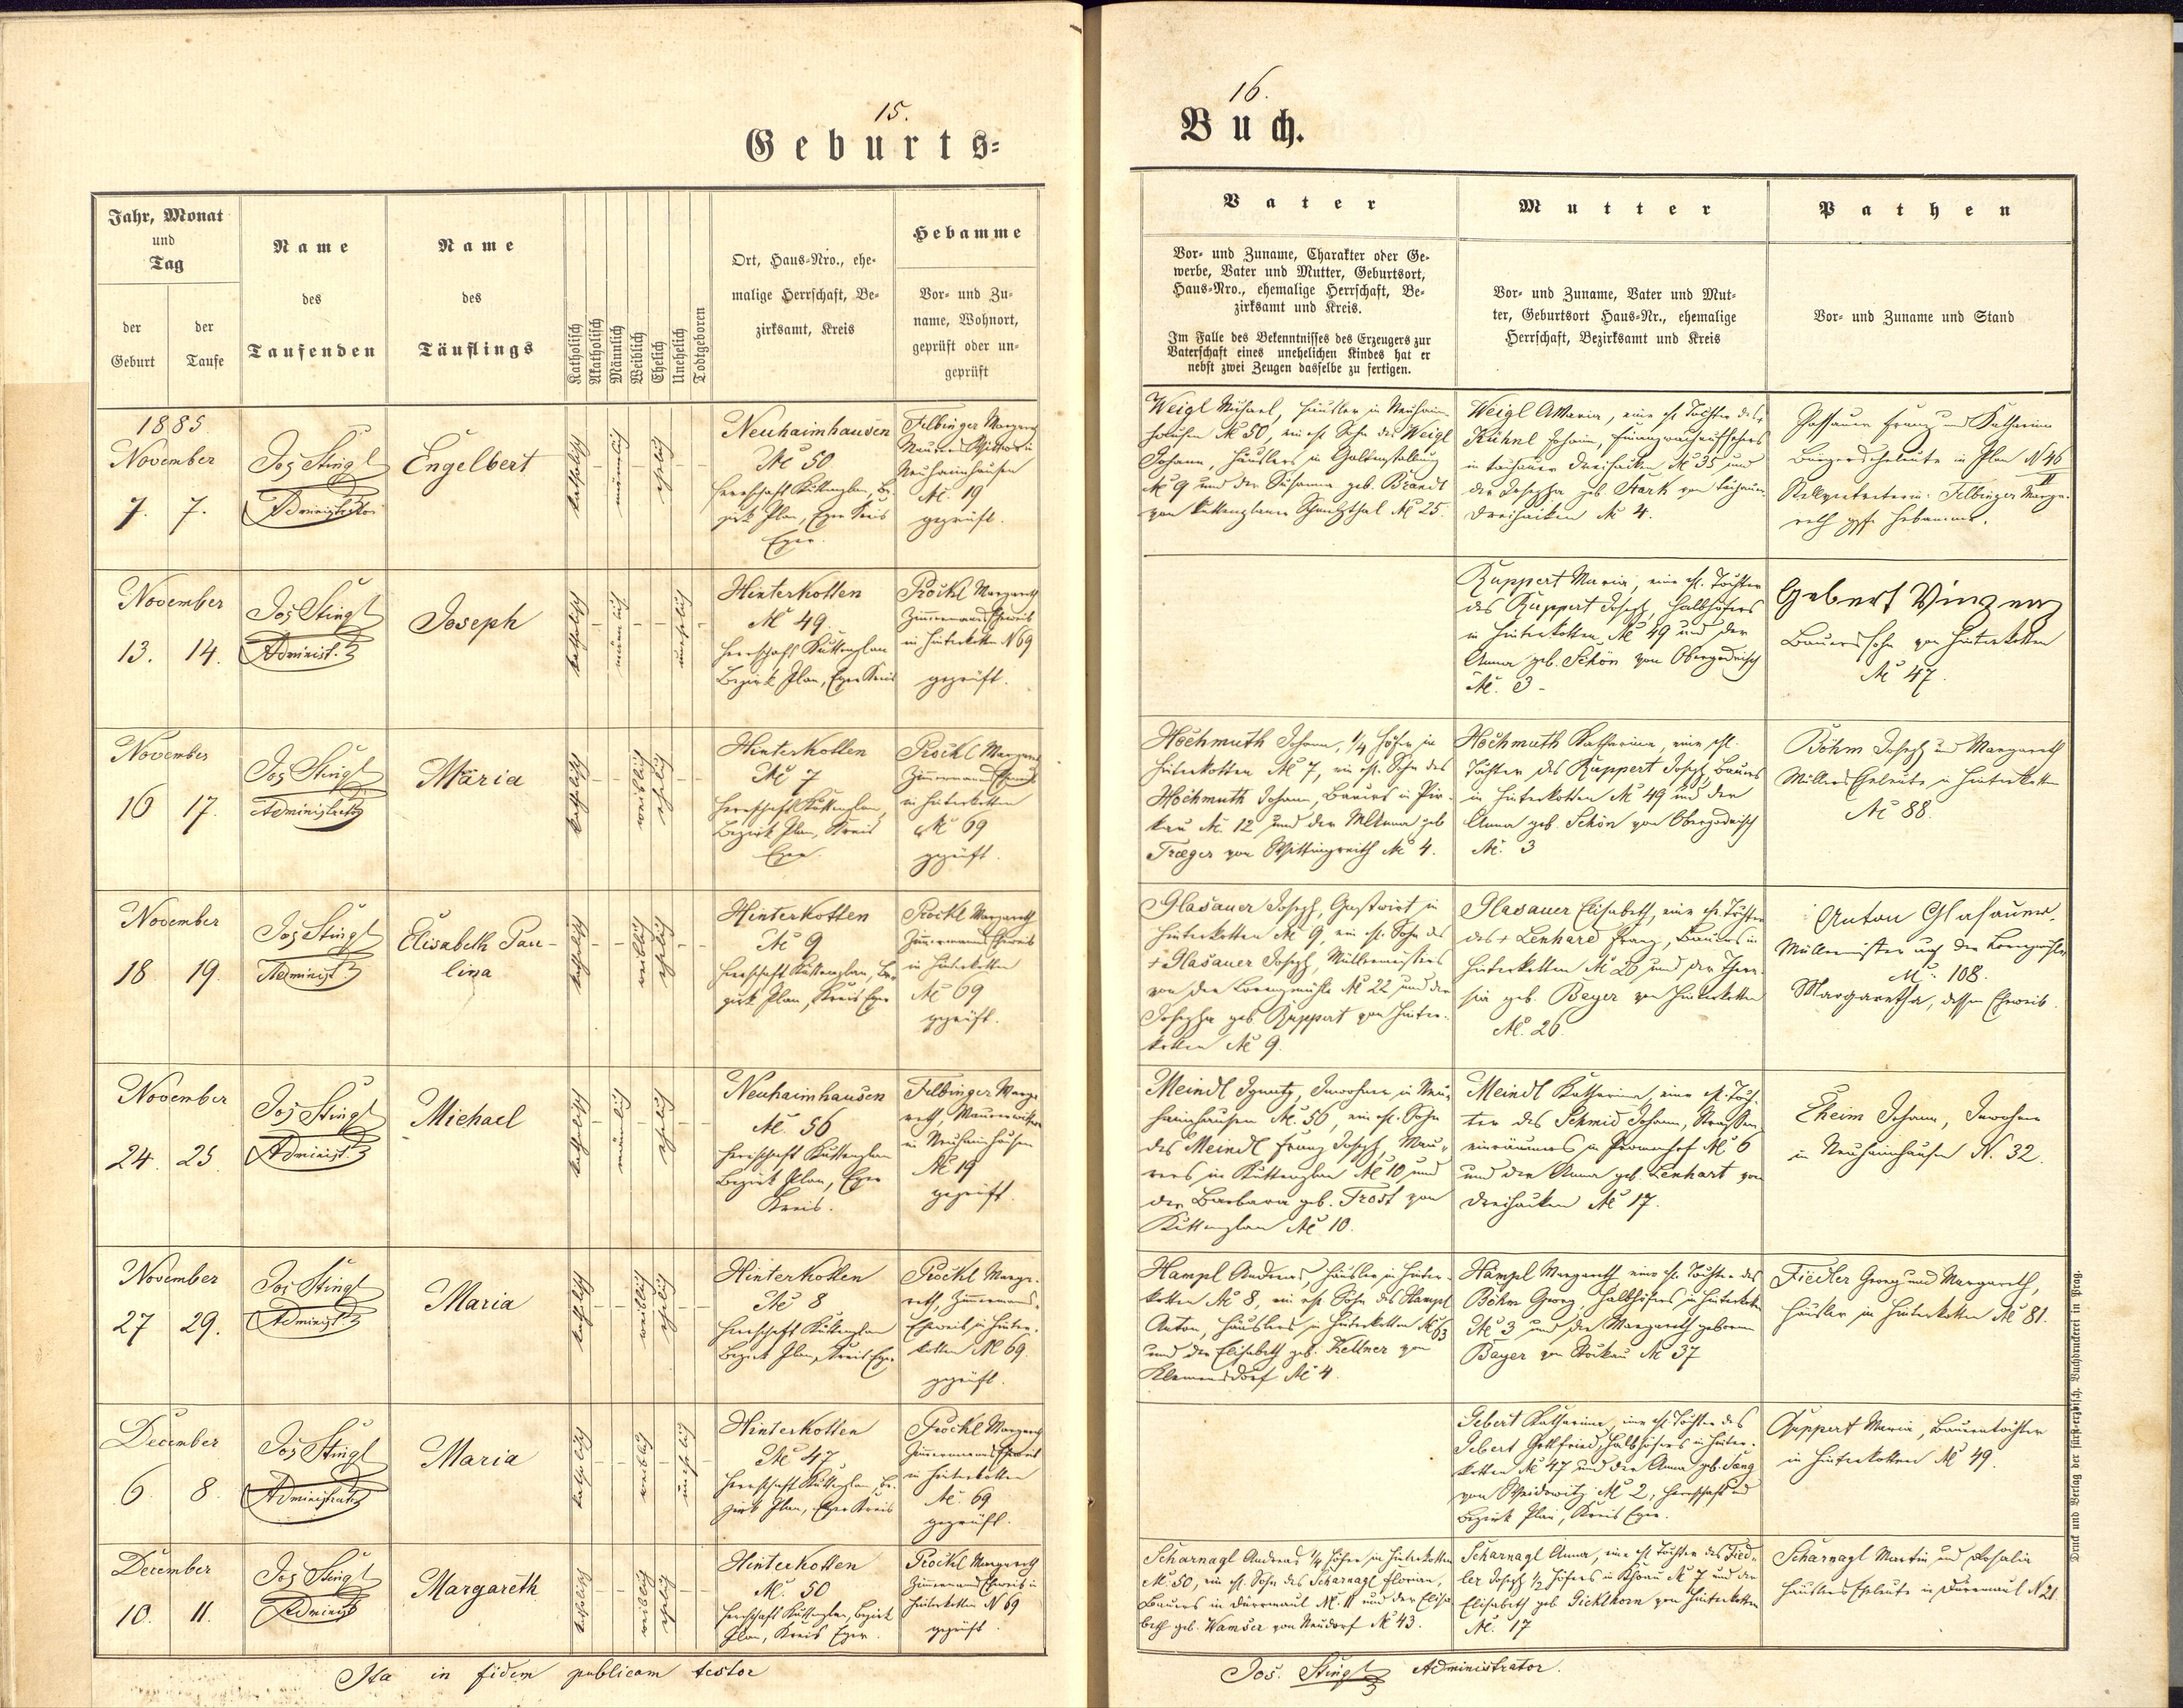 15.
Geburts-
Jahr, Monat
und
Tag
der
Geburt
der
Taufe
Name
des
Taufenden
Name
des
Täuflings
Katholisch
Akatholisch
Männlich
Weiblich
Ehelich
Unehelich
Todtgeboren
Ort, Haus-Nro., ehe-
malige Herrschaft, Be-
zirksamt, Kreis
Hebamme
Vor- und Zu-
name, Wohnort,
geprüft oder un-
geprüft
1885
November
7. 7.
Jos Stingl
Administrator
Engelbert
katholisch
männlich
ehelich
Neuhaimhausen
№ 50
Herrschaft Kuttenplan, Be-
zirk Plan, Eger Kreis
Eger.
Felbinger Margareth
Neuhaimhausen
№ 19
geprüft.
November
13. 14.
Jos Stingl
Administ.
Joseph
katholisch
männlich
unehelich
Hinterkotten
№ 49.
Herrschaft Kuttenplan
Bezirk Plan, Eger Kreis
Prökl Margareth
Zimmermanns Eheweib
in Hinterkotten N 69
geprüft.
November
16 17.
Jos Stingl
Administrator
Maria
katholisch
weiblich
ehelich
Hinterkotten
№ 7
Herrschaft Kuttenplan,
Bezirk Plan, Kreis
Eger.
Prökl Margareth
Zimmermanns Eheweib
in Hinterkotten
№ 69
geprüft.
November
18. 19.
Jos Stingl
Administ.
Elisabeth Pau-
lina
katholisch
weiblich
ehelich
Hinterkotten
№ 9
Herrschaft Kuttenplan, Be-
zirk Plan, Kreis Eger
Prökl Margareth
Zimmermanns Eheweib
in Hinterkotten
№ 69
geprüft.
November
24. 25.
Jos Stingl
Administ.
Michael
katholisch
männlich
ehelich
Neuhaimhausen
№. 56
Herrschaft Kuttenplan
Bezirk Plan, Eger
Kreis.
Felbinger Marga-
reth, Maurerswitwe
in Neuhaimhausen
№ 19
geprüft.
November
27 29.
Jos Stingl
Administ.
Maria
katholisch
weiblich
ehelich
Hinterkotten
№ 8
Herrschaft Kuttenplan
Bezirk Plan, Kreis Eger
Prökl Marga-
reth, Zimmermanns-
Eheweib in Hinter-
kotten № 69.
geprüft.
December
6. 8.
Jos Stingl
Administrator
Maria
katholisch
weiblich
unehelich
Hinterkotten
№ 47
Herrschaft Kuttenplan, Be-
zirk Plan, Eger Kreis
Prökl Margareth
Zimmermanns Eheweib
in Hinterkotten
№. 69
geprüft.
December
10. 11.
Jos Stingl
Administ
Margareth
katholisch
weiblich
ehelich
Hinterkotten
№. 50
Herrschaft Kuttenplan, Bezirk
Plan, Kreis Eger.
Prökl Margareth
Zimmermanns Eheweib in
Hinterkotten N 69
geprüft.
Ita in fidem publicam testor
16.
Buch.
Vater
Vor- und Zuname, Charakter oder Ge-
werbe, Vater und Mutter, Geburtsort,
Haus-Nro., ehemalige Herrschaft, Be-
zirksamt und Kreis.
Im Falle des Bekenntnisses des Erzeugers zur
Vaterschaft eines unehelichen Kindes hat er
nebst zwei Zeugen dasselbe zu fertigen.
Mutter
Vor- und Zuname, Vater und Mut-
ter, Geburtsort Haus-Nr., ehemalige
Herrschaft, Bezirksamt und Kreis
Pathen
Vor- und Zuname und Stand
Weigl Michael, Häusler in Neuhaim-
hausen № 50, ein ehl. Sohn des Weigl
Johann, Häuslers in
№ 9 und der Susanna geb. Brandl
von Kuttenplaner Schmelzthal № 25.
Weigl Maria, eine ehl. Tochter des
Kühnl Johann, Finanzwachaufsehers
in Tachauer Dreihacken № 35 und
der Josepha geb. Stark von Tachauer
Dreihacken № 4.
Passauer Franz und Katharina
Bürgerseheleute in Plan N 46
Stellvertreterin: Felbinger Marga-
reth gepr. Hebamme.
Ruppert Maria, eine ehl. Tochter
des Ruppert Joseph, Halbhöfers
in Hinterkotten № 49 und der
Anna geb. Schön von Obergodrisch
№. 3 -
Gebert Vinzenz
Bauerssohn von Hinterkotten
№ 47.
Hochmuth Johann, 1/4 Höfer in
Hinterkotten № 7, ein ehl. Sohn des
Hochmuth Johann, Bauers in Pir-
kau №. 12 und der M. Anna geb
Træger von Wittingreith № 4.
Hochmuth Katharina, eine ehl.
Tochter des Ruppert Joseph, Bauers
in Hinterkotten № 49 und der
Anna geb. Schön von Obergodrisch
№. 3
Böhm Joseph und Margareth
Müllers Eheleute in Hinterkotten
№ 88.
Glasauer Joseph, Gastwirt in
Hinterkotten № 9, ein ehl. Sohn des
+ Glasauer Joseph, Müllermeisters
von der Lorenzmühle № 22 und der
Josepha geb. Ruppert von Hinter-
kotten № 9.
Glasauer Elisabeth, eine ehl. Tochter
des + Lenhard Franz, Bauers in
Hinterkotten № 20 und der There-
sia geb. Beyer von Hinterkotten
№. 26
Anton Glasauer.
Müllermeister auf der
№: 108.
Margaretha, dessen Eheweib.
Meindl Ignatz, Inwohner in Neu-
haimhausen №. 56, ein ehl. Sohn
des Meindl Franz Joseph, Mau-
rers in Kuttenplan № 10 und
der Barbara geb. Trost von
Kuttenplan № 10.
Meindl Katharina, eine ehl. Toch-
ter des Schmid Johann, Straßen-
einräumers in Promenhof № 6
und der Anna geb. Lenhart von
Dreihacken № 17.
Eheim Johann, Inwohner
in Neuhaimhausen N. 32.
Hampl Andreas, Häusler in Hinter-
kotten № 8, ein ehl. Sohn des Hampl
Anton, Häuslers in Hinterkotten № 63
und der Elisabeth geb. Kellner von
Klemensdorf № 4.
Hampl Margareth eine ehl. Tochter des
Böhm Georg, Halbhöfers in Hinterkotten
№ 3 und der Margareth geborene
Bayer von Stockau № 37
Fiedler Georg und Margareth,
Häusler in Hinterkotten № 81.
Gebert Katharina, eine ehl. Tochter des
Gebert Gottfried, Halbhöfers in Hinter-
kotten № 47 und der Anna geb.
von № 2, Herrschaft und
Bezirk Plan, Kreis Eger.
Ruppert Maria, Bauerntochter
in Hinterkotten № 49.
Scharnagl Andreas 1/4 Höfer in Hinterkotten
№. 50, ein ehl. Sohn des Scharnagl Florian,
Bauers in Dürrmaul №. 11 und der Elisa-
beth geb. Wamser von Neudorf № 43.
Scharnagl Anna, eine ehl. Tochter des Fied-
ler Joseph 1/2 Höfers in Khoau № 7 und der
Elisabeth geb. Gichthorn von Hinterkotten
№. 17
Scharnagl Martin und Rosalia
Häuslers Eheleute in Dürrmaul N 21.
Jos. Stingl Administrator.
Druck und Verlag der fürst-erzbisch. Buchdruckerei in Prag.